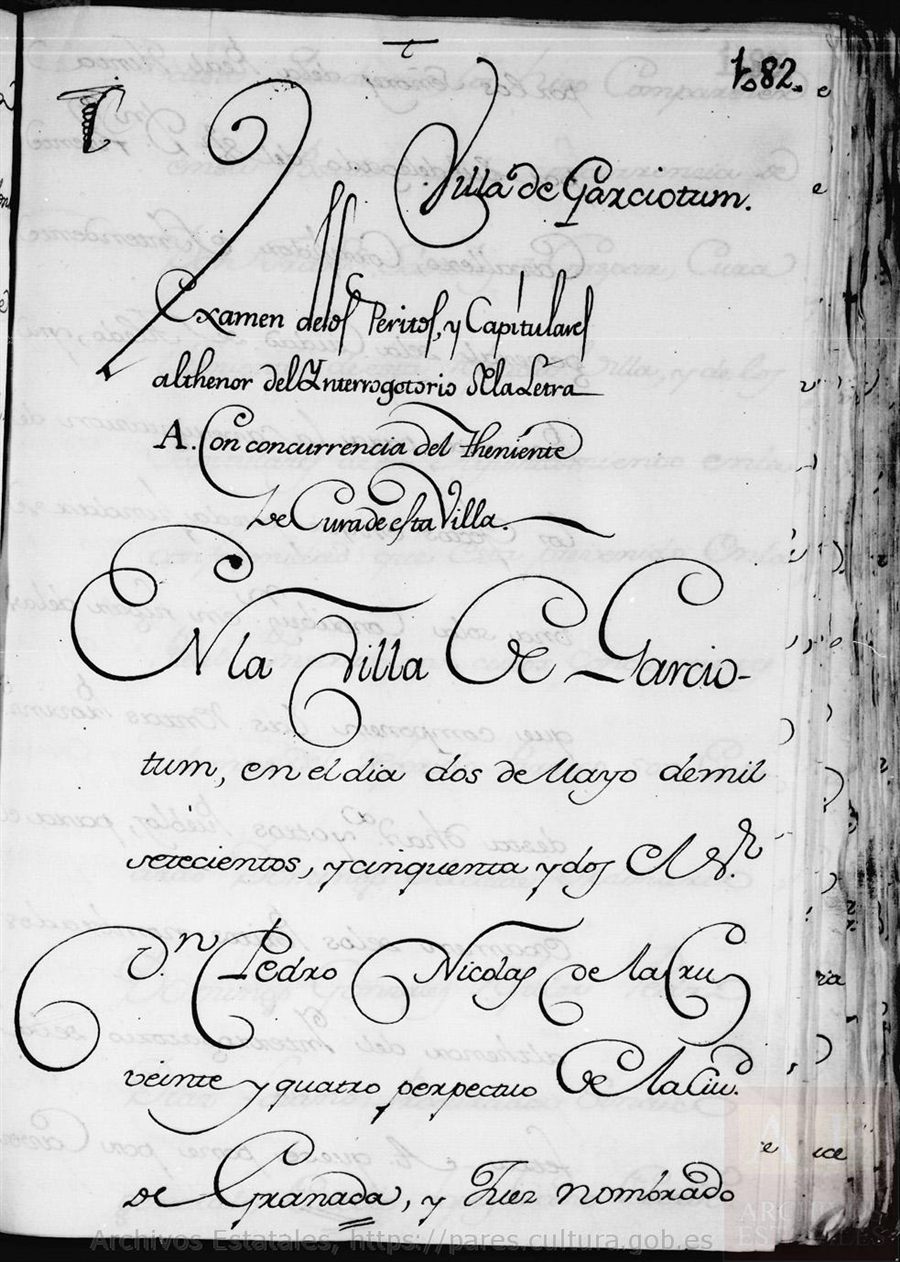 182.
Villa de Garciotum.
Examen delos Peritos, y Capitulares
althenor del Ynterrogotorio de la Letra
A. Con concurrencia del Theniente
De Cura de esta Villa.
EN la Villa De Garcio-
tum, en el dia dos de Mayo de mil
setecientos, y cinquenta y dos El Sr.
Dn Pedro Nicolas de la Cruz
veinte y quatro perpectuo De la Ciud.
de Granada, y Juez nombrado
Archivos Estatales, https://pares.cultura.gob.es